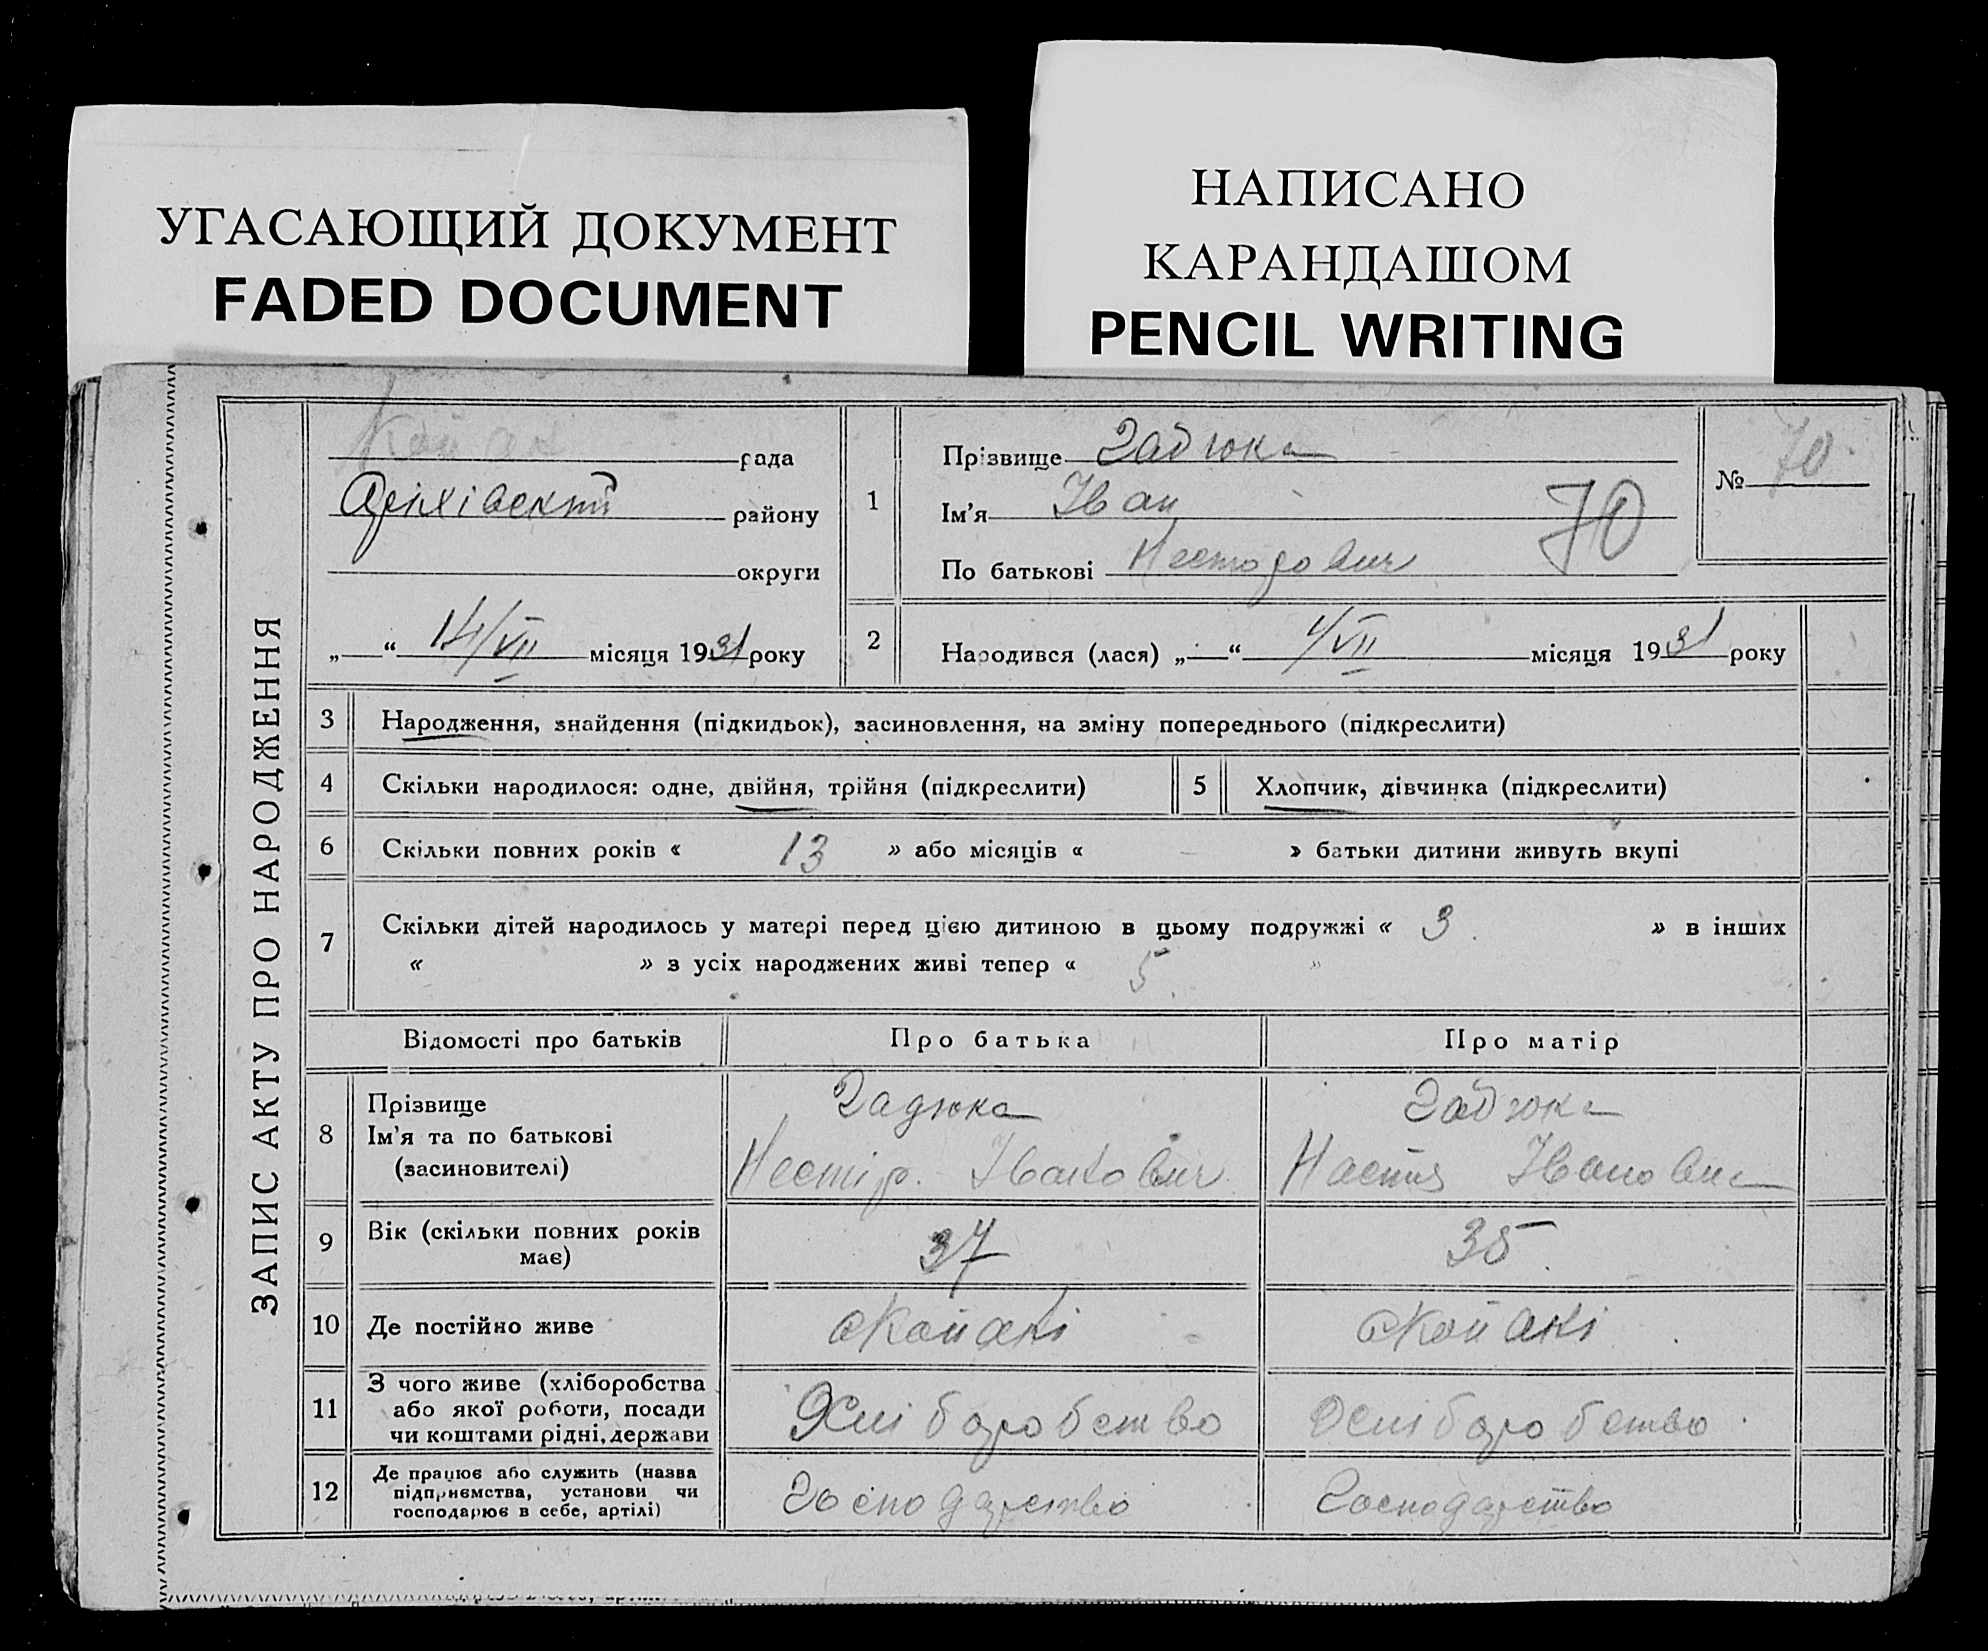 УГАСАЮЩИЙ ДОКУМЕНТ
FADED DOCUMENT
НАПИСАНО
КАРАНДАШОМ
PENCIL WRITING
ЗАПИС АКТУ ПРО НАРОДЖЕННЯ
рада
району
округи
„ “ 14/VII місяця 1931 року
1
Прізвище Гадюка
Ім’я Іван
По батькові Несторович
70
№ 70
2 Народився (лася) „ “ 1/VII місяця 1931 року
3 Народження, знайдення (підкидьок), засиновлення, на зміну попереднього (підкреслити)
4 Скільки народилося: одне, двійня, трійня (підкреслити) 5 Хлопчик, дівчинка (підкреслити)
6 Скільки повних років « 13 » або місяців « – » батьки дитини живуть вкупі
7 Скільки дітей народилось у матері перед цією дитиною в цьому подружжі « 3 » в інших
« » з усіх народжених живі тепер « 5 »
Відомості про батьків Про батька Про матір
8 Прізвище Гадюка Гадюка
Ім’я та по батькові Нестір Іванович Настя Івановна
(засиновителі)
9 Вік (скільки повних років має) 37 35
10 Де постійно живе
11 З чого живе (хліборобства або якої роботи, посади чи коштами рідні, держави Хліборобство Хліборобство
12 Де працює або служить (назва підприємства, установи чи господарює в себе, артілі) Господарство Господарство